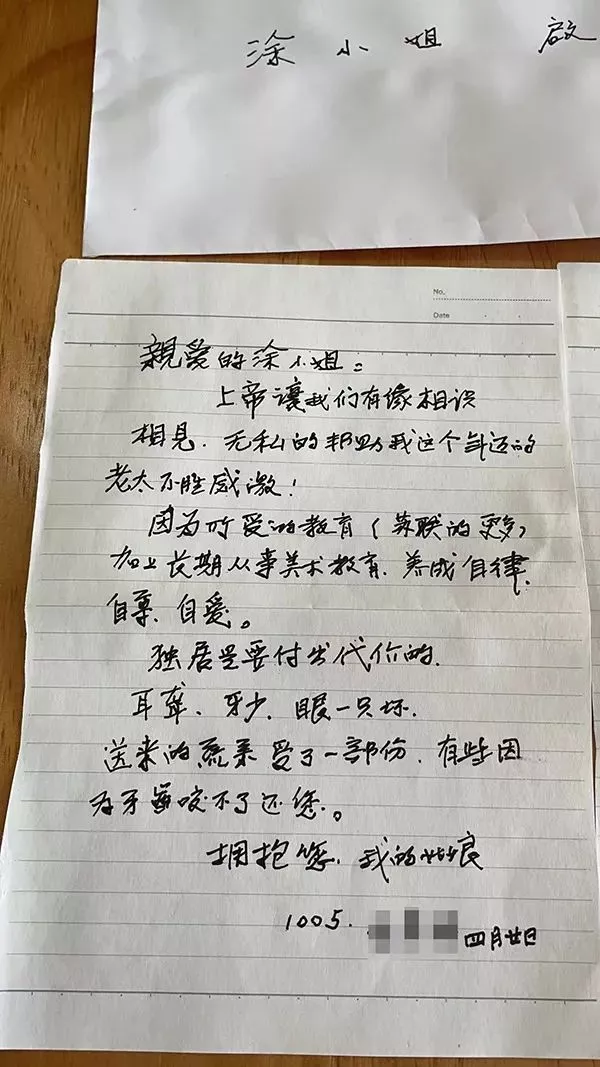 涂小姐 啟
No.
Date
親爱的涂小姐：
上帝讓我们有缘相识
相見．无私的邦助我这个年迈的
老太不胜感激！
因为所受的教育（苏联的更多）
加上长期从事美术教育．养成自律．
自尊．自爱。
独居是要付出代价的．
耳聋．牙少．眼一只坏．
送来的蔬菜受了一部份．有些因
为牙齒咬不了还您。
拥抱您．我的姑娘
1005．
四月廿日